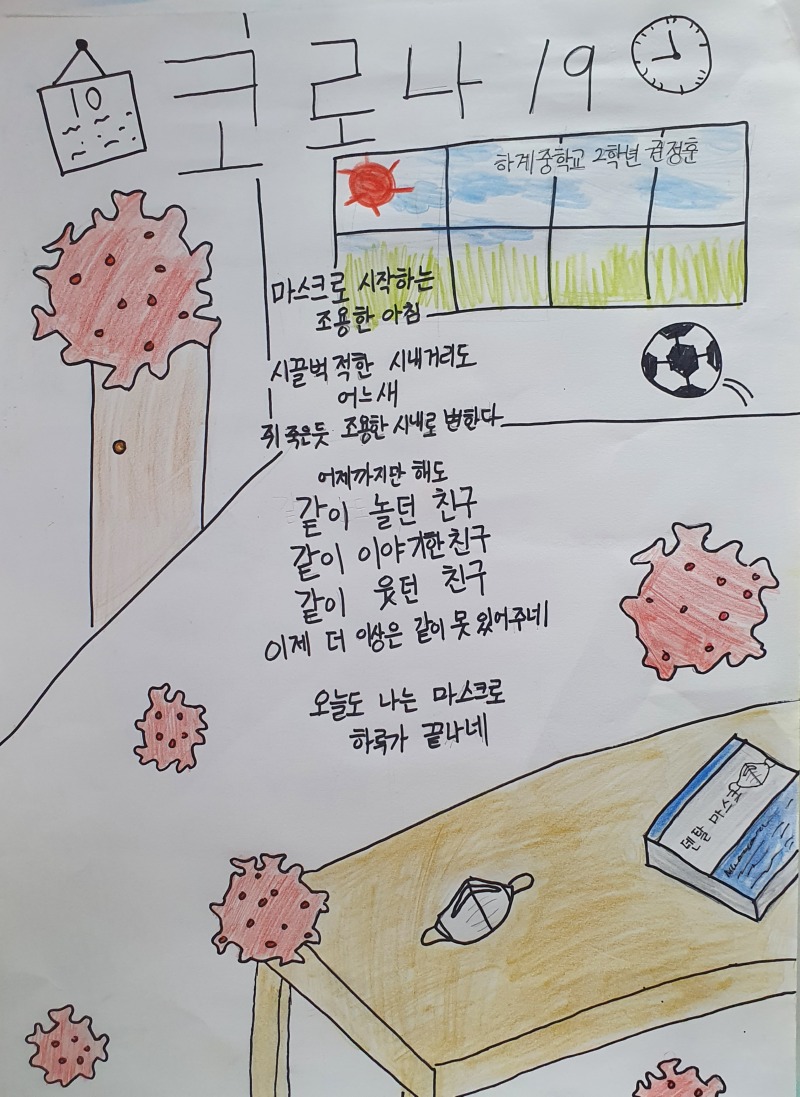 코로나 19
10
하계중학교 2학년 권정훈
마스크로 시작하는
조용한 아침
시끌벅적한 시내거리도
어느새
쥐 죽은듯 조용한 시내로 변한다
어제까지만 해도
같이 놀던 친구
같이 이야기한 친구
같이 웃던 친구
이제 더 이상은 같이 못 있어주네
오늘도 나는 마스크로
하루가 끝나네
덴탈 마스크